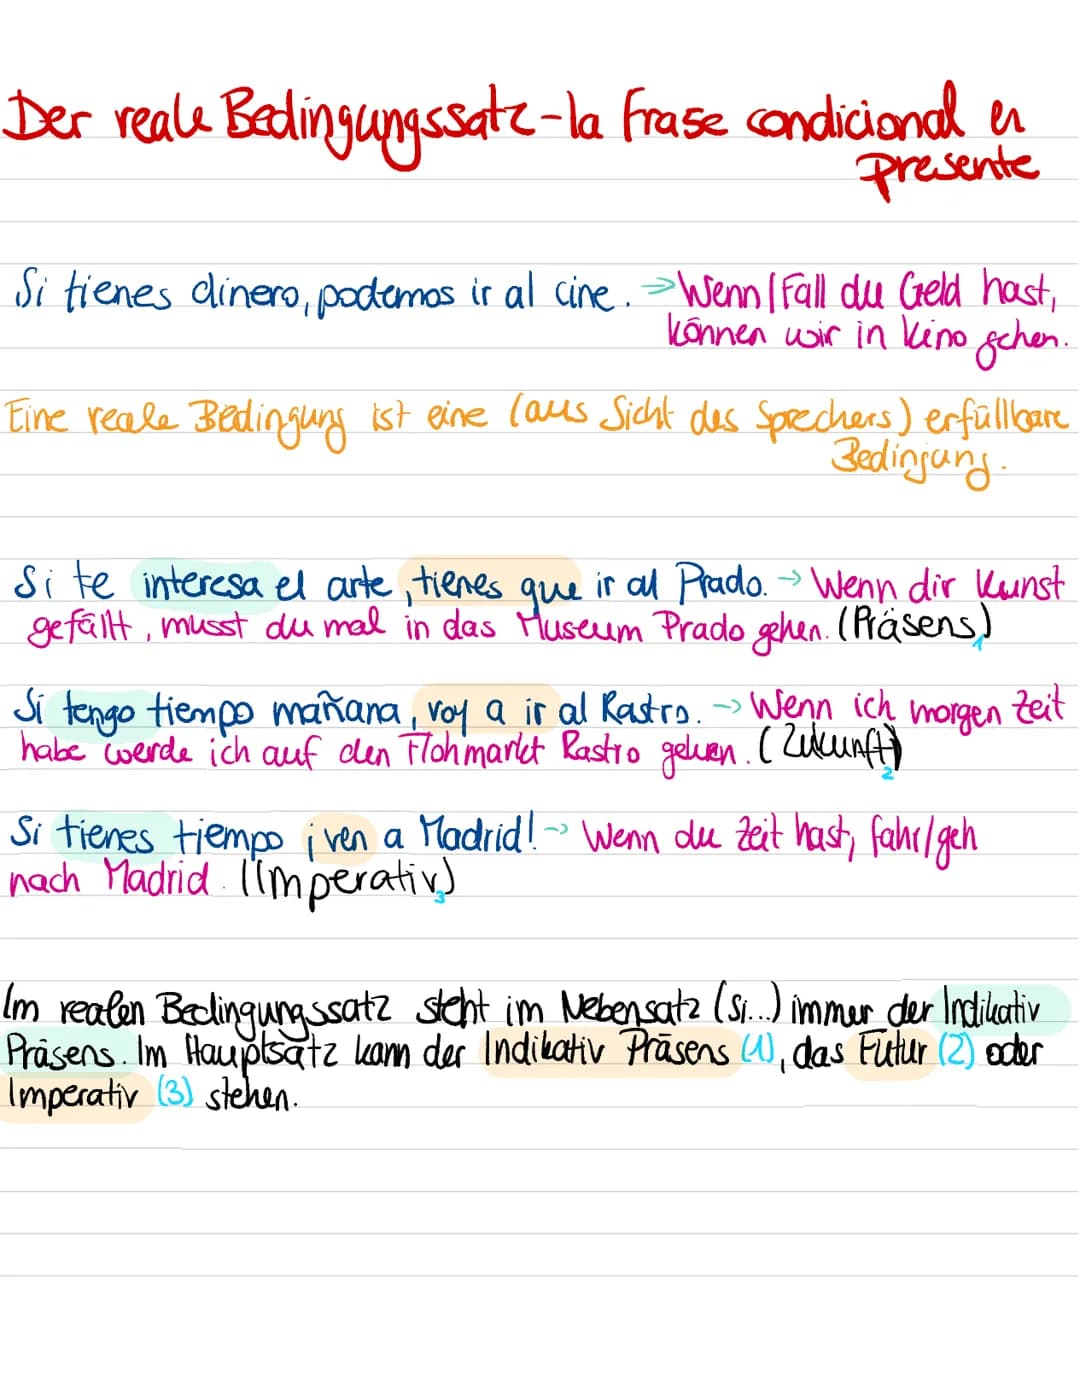 Der reale Bedingungssatz-la frase condicional en
presente
Si tienes dinero, podemos ir al cine. → Wenn/Fall du Geld hast,
können wir in Kino gehen.
Eine reale Bedingung ist eine (aus Sicht des Sprechers) erfüllbare
Bedingung.
Si te interesa el arte, tienes que ir al Prado. → Wenn dir Kunst
gefällt, musst du mal in das Museum Prado gehen. (Präsens)1
Si tengo tiempo mañana, voy a ir al Rastro. → Wenn ich morgen Zeit
habe werde ich auf den Flohmarkt Rastro gehen. (Zukunft)2
Si tienes tiempo ¡ven a Madrid! → Wenn du Zeit hast, fahr/geh
nach Madrid. (Imperativ)3
Im realen Bedingungssatz steht im Nebensatz (Si...) immer der Indikativ
Präsens. Im Hauptsatz kann der Indikativ Präsens (1), das Futur (2) oder
Imperativ (3) stehen.